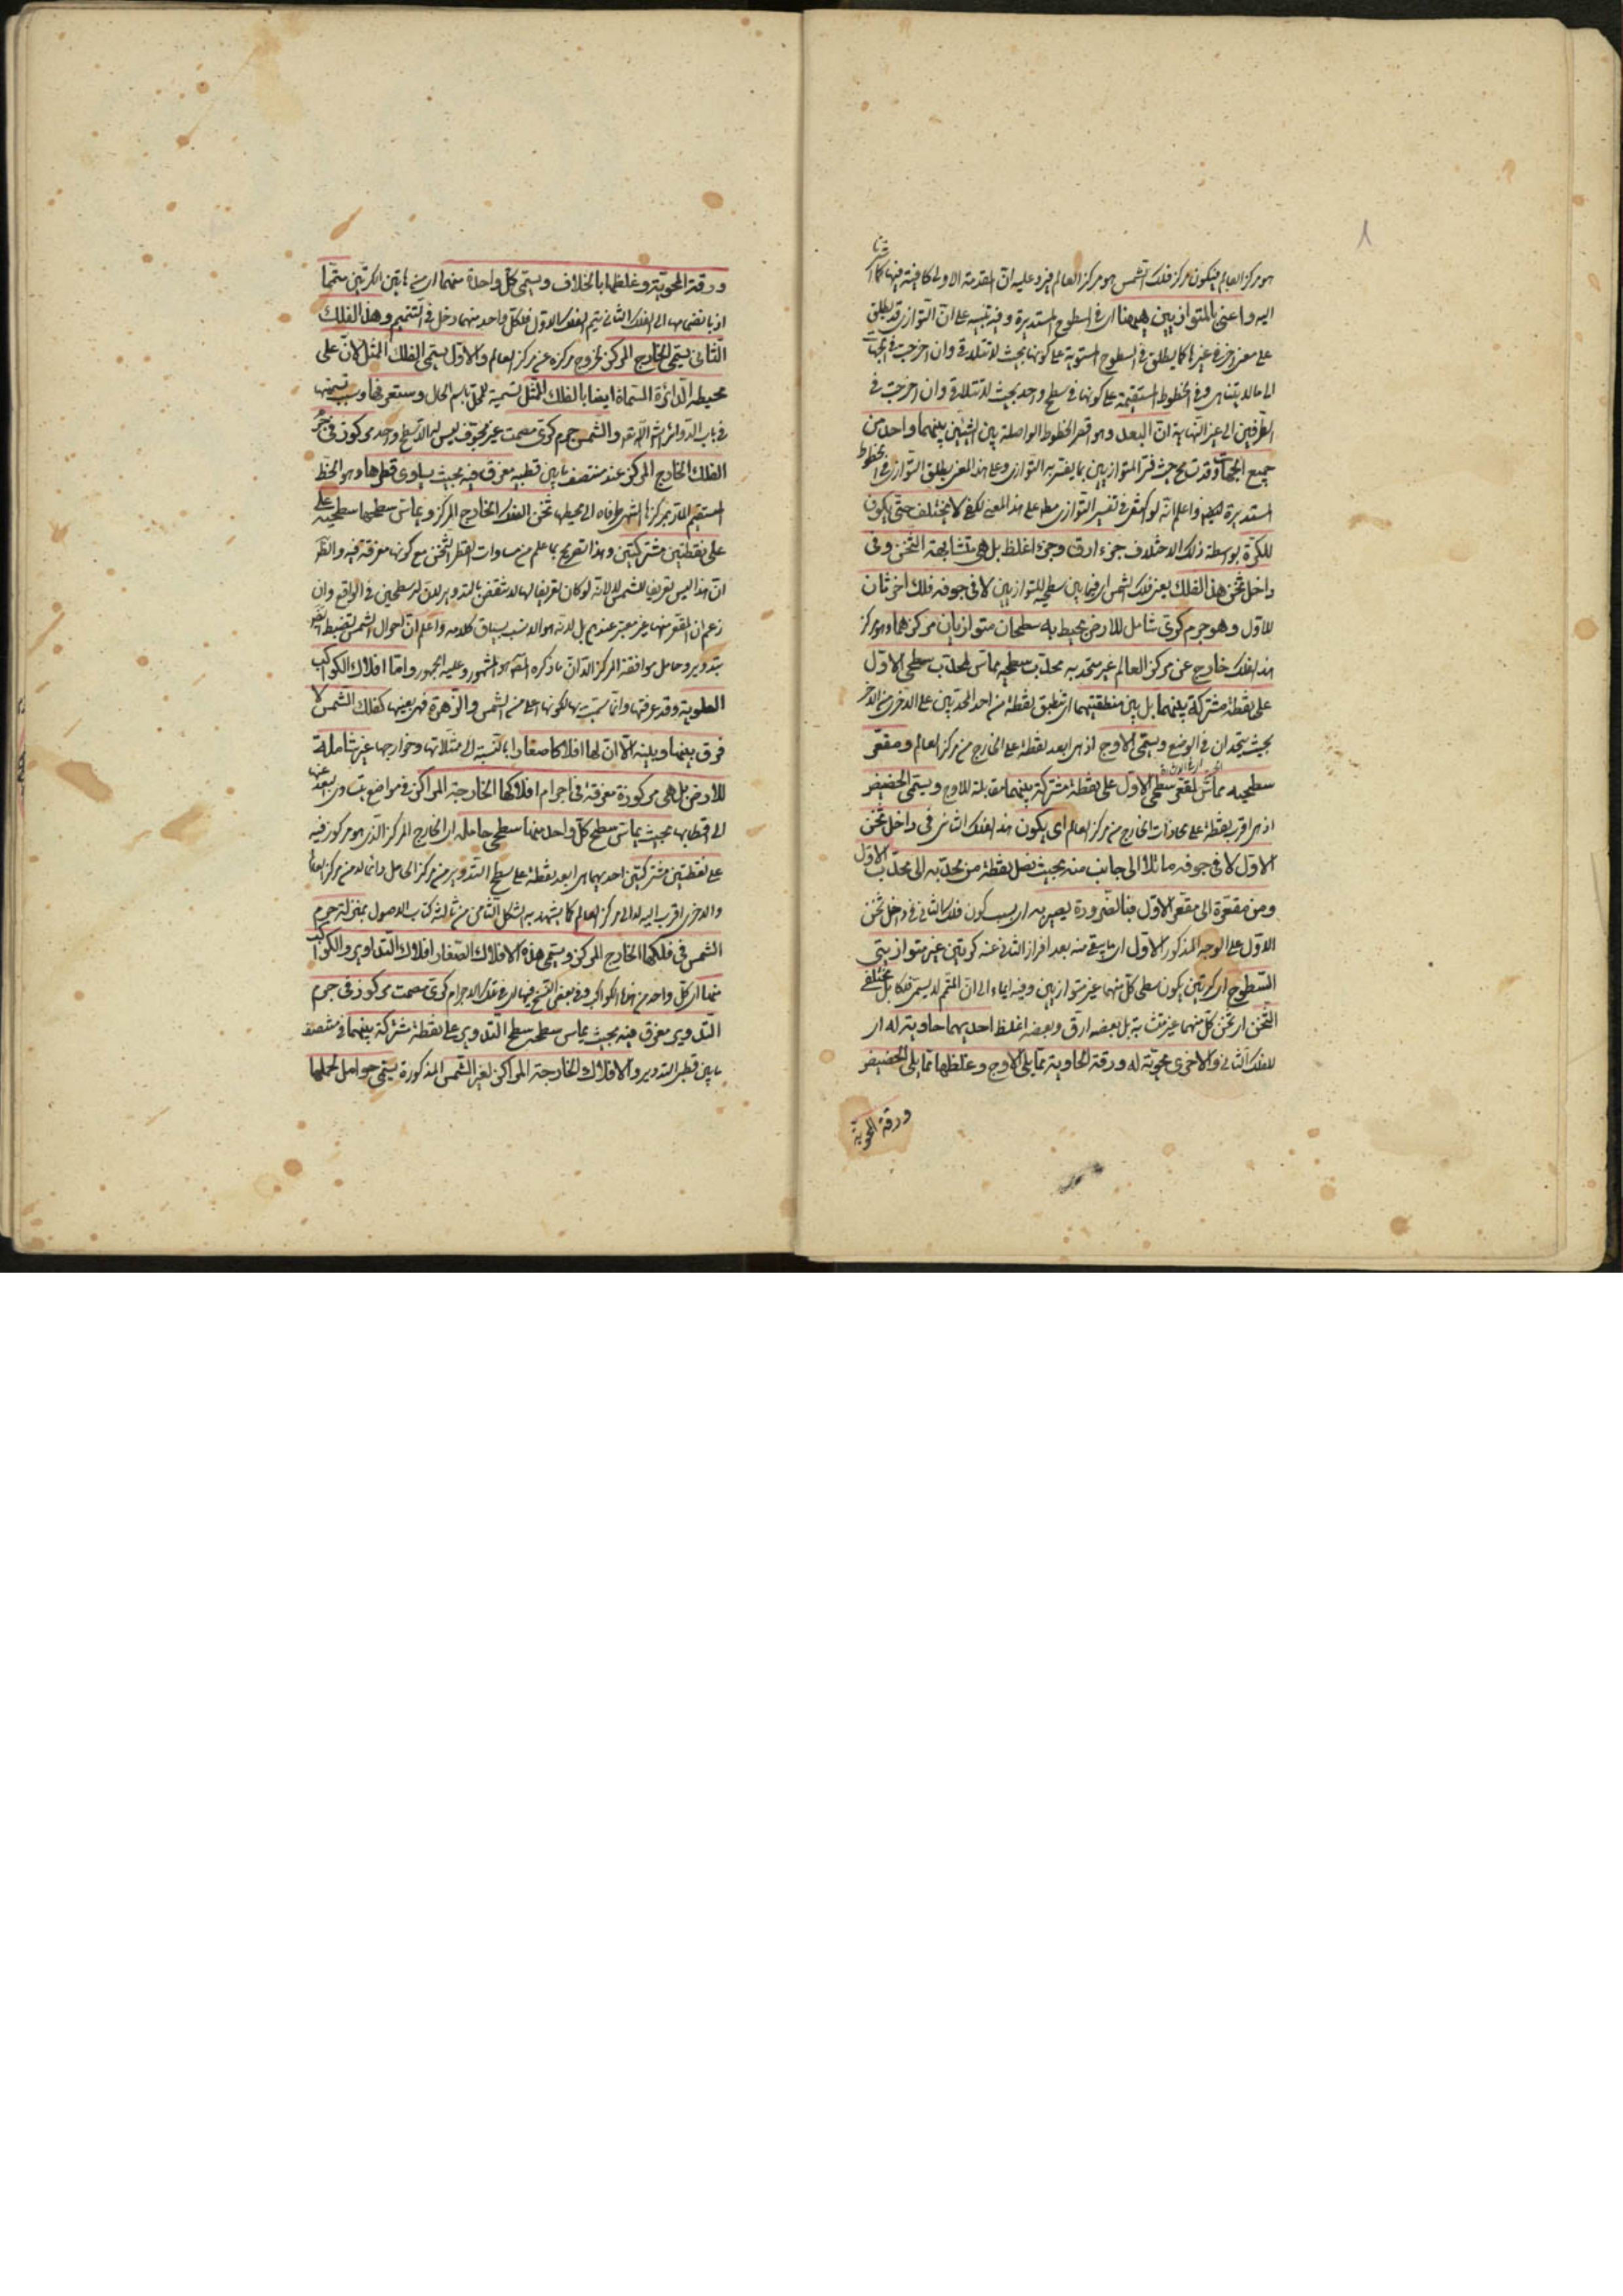 هو مركز العالم فيكون مركز فلك الشمس هو مركز العالم فيرد عليه ان المقدمة الاولى كافية فيها كما اشرنا
اليه واعنى بالمتوازيين ههنا اى فى السطوح المستديرة وفيه تنبيه على ان التوازى قد يطلق
على معنى اخر فى غيرها كما يطلق فى السطوح المستوية على كونها بحيث لا تتلاقى وان اخرجت فى الجهات
الى ما لا يتناهى وفى الخطوط المستقيمة على كونها فى سطح واحد بحيث لا تتلاقى وان اخرجت فى
الطرفين الى غير النهاية ان البعد وهو اقصر الخطوط الواصلة بين الشيئين بينهما واحد من
جميع الجهات وقد حيث فسر المتوازيين بما يفسر به التوازى وعلى هذا المعنى يطلق التوازى فى الخطوط
المستديرة ايضا واعلم انه لو فى تفسير التوازى على هذا المعنى لكفى لا يختلف حتى يكون
للكرة بواسطة ذلك الاختلاف جزء ارق وجزء اغلظ بل هى متشابهة الثخن وفى
داخل ثخن هذا الفلك يعنى فلك الشمس اى فيما بين سطحيه المتوازيين لا فى جوفه فلك اخر ثان
للاول وهو جرم كرى شامل للارض يحيط به سطحان متوازيان مركزهما وهو مركز
هذا الفلك خارج عن مركز العالم غير متحد به محدب سطحيه مماس لمحدب سطحى الاول
على نقطة مشتركة بينهما بل بين منطقتيهما اى تنطبق نقطة من احد المحدبين على الاخرى من الاخر
بحيث يتحدان فى الوضع ويسمى الاوج اذ هى ابعد نقطة على الخارج من مركز العالم ومقعر
سطحيه مماس لمقعر سطحى الاول على نقطة مشتركة بينهما مقابلة للاوج ويسمى الحضيض
اذ هى اقرب نقطة على محاذات الخارج من مركز العالم اى يكون هذا الفلك الثانى فى داخل ثخن
الاول لا فى جوفه مائلا الى جانب منه بحيث تصل نقطة من محدبه الى محدب الاول
ومن مقعره الى مقعر الاول فبالضرورة يصير به اى بسبب كون فلك الثانى فى داخل ثخن
الاول على الوجه المذكور الاول اى ما يبقى منه بعد افراز الثانى عنه كرتين غير متوازيتى
السطوح اى كرتين يكون سطحى كل منهما غير متوازيين وفيه ايماء الى ان المتمم لا يسمى فلكا بل مختلفى
الثخن اى ثخن كل منهما غير متشابه بل بعضه ارق وبعضه اغلظ احديهما حاوية له اى
للفلك الثانى والاخرى محوية له ورقة الحاوية مما يلى الاوج وغلظها مما يلى الحضيض
ورقة المحوية
ورقة المحوية وغلظها بالخلاف ويسمى كل واحدة منهما اى من هاتين الكرتين متمما
اذ بانضمامها الى الفلك الثانى يتم الفلك الاول فلكل واحد منهما دخل فى التتميم وهذا الفلك
الثانى يسمى الخارج المركز لخروج مركزه عن مركز العالم والاول يسمى الفلك الممثل لان على
محيطه الدائرة المسماة ايضا بالفلك الممثل تسمية للمحل باسم الحال وستعرفها وسبب تسميتها
فى باب الدوائر ان شاء الله تعالى والشمس جرم كرى مصمت غير مجوف ليس له الا سطح واحد مركوز فى جرم
الفلك الخارج المركز عند منتصف ما بين قطبيه مغرق فيه بحيث يساوى قطرها وهو الخط
المستقيم المار بمركزها المنتهى طرفاه الى محيطها ثخن الفلك الخارج المركز ويماس سطحها سطحيه على
على نقطتين مشتركتين وهذا تصريح بما علم من مساوات القطر للثخن مع كونها مغرقة فيه والظاهر
ان هذا ليس تعريفا للشمس لانه لو كان تعريفا لها لانتقض بالتدوير لان له سطحين فى الواقع وان
زعم ان المقعر منهما غير معتبر عندهم بل لانه هو الانسب بسياق كلامه واعلم ان احوال الشمس تنضبط ايضا
بتدوير وحامل موافقة المركز الا ان ما ذكره المص هو المشهور وعليه الجمهور واما افلاك الكواكب
العلوية وقد عرفتها وانما سميت بها لكونها اعلى من الشمس والزهرة فهى بعينها كفلك الشمس لا
فرق بينها وبينه الا ان لها افلاكا صغارا بالنسبة الى ممثلاتها وخوارجها غير شاملة
للارض بل هى مركوزة مغرقة فى اجرام افلاكها الخارجة المراكز فى مواضع يتساوى البعد عنها
الى اقطابها بحيث يماس سطح كل واحد منها سطحى حامله اى الخارج المركز الذى هو مركوز فيه
على نقطتين مشتركتين احديهما هى ابعد نقطة على سطح التدوير من مركز الحامل دائما لا من مركز العالم
والاخرى اقرب اليه لا الى مركز العالم كما يشهد به الشكل الثامن من ثالثة كتاب الاصول بمنزلة جرم
الشمس فى فلكها الخارج المركز ويسمى هذه الافلاك الصغار افلاك التداوير والكواكب
منها اى كل واحد من هذه الكواكب وفى بعض النسخ فيها اى فى تلك الاجرام كرى مصمت مركوز فى جرم
التدوير مغرق فيه بحيث يماس سطحه سطح التدوير على نقطة مشتركة بينهما فى منتصف
ما بين قطبى التدوير والافلاك الخارجة المراكز لغير الشمس المذكورة يسمى حوامل لحملها